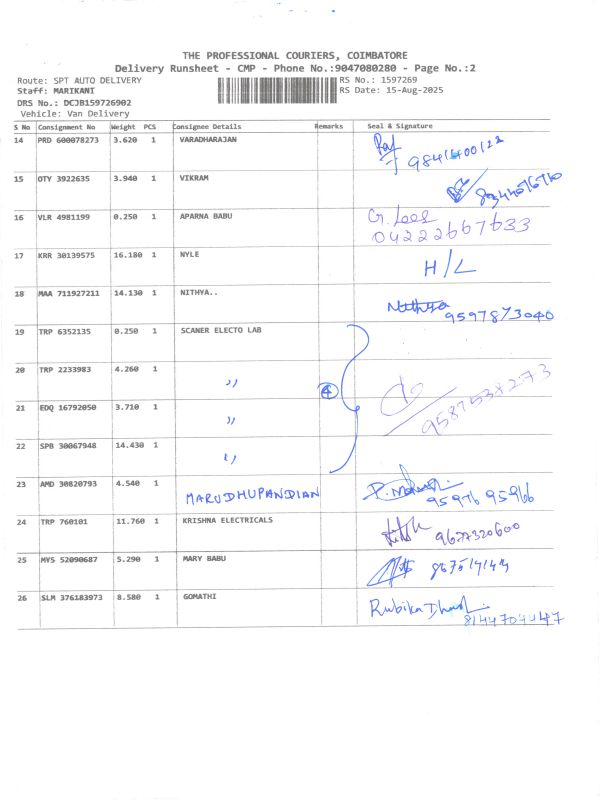 THE PROFESSIONAL COURIERS, COIMBATORE
Delivery Runsheet - CMP - Phone No.:9047080280 - Page No.:2
Route: SPT AUTO DELIVERY RS No.: 1597269
Staff: MARIKANI RS Date: 15-Aug-2025
DRS No.: DCJB159726902
Vehicle: Van Delivery
S No Consignment No Weight PCS Consignee Details Remarks Seal & Signature
14 PRD 600078273 3.620 1 VARADHARAJAN
15 OTY 3922635 3.940 1 VIKRAM
16 VLR 4981199 0.250 1 APARNA BABU
04222667633
17 KRR 30139575 16.180 1 NYLE H/L
18 MAA 711927211 14.130 1 NITHYA.. Nithya
9597873040
19 TRP 6352135 0.250 1 SCANER ELECTO LAB
20 TRP 2233983 4.260 1 ,, 4
9587538273
21 EDQ 16792050 3.710 1 ,,
22 SPB 30067948 14.430 1 ,,
23 AMD 30820793 4.540 1 MARUDHUPANDIAN
95976 95966
24 TRP 760101 11.760 1 KRISHNA ELECTRICALS
9677320600
25 MYS 52090687 5.290 1 MARY BABU
26 SLM 376183973 8.580 1 GOMATHI Rubika
8144704447